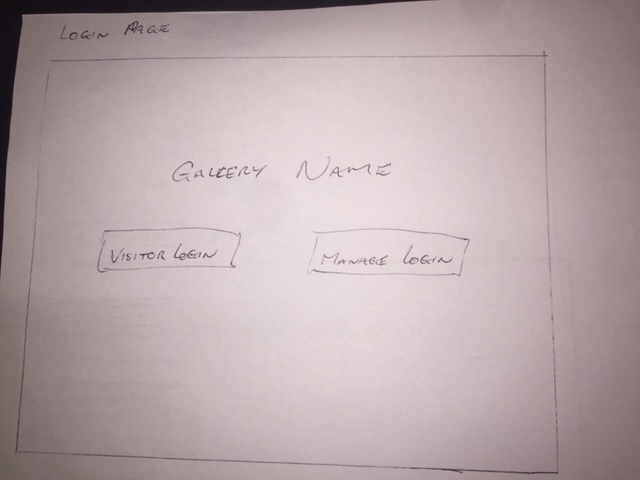 LOGIN PAGE
GALLERY NAME
VISITOR LOGIN
MANAGE LOGIN